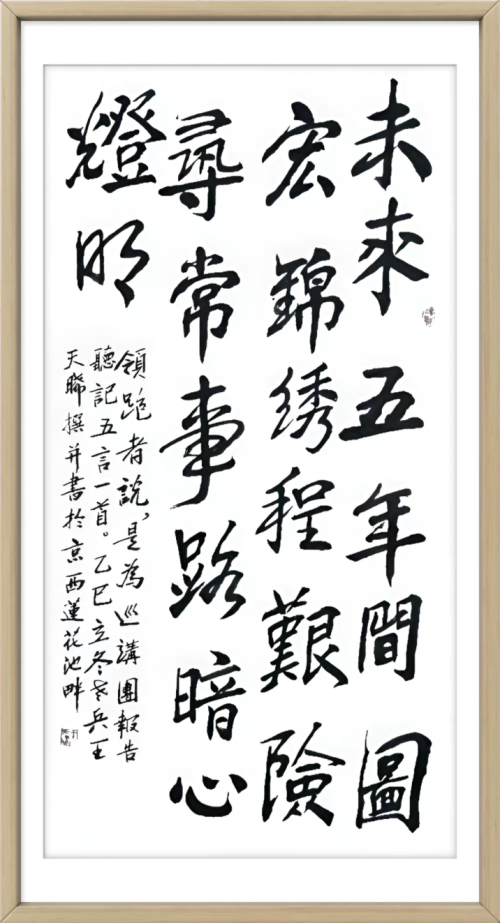 未來五年間圖
宏錦绣程艱險
尋常事路暗心
燈明
領跑者說，是為巡講團報告
聽記五言一首。乙巳立冬老兵王
天聯撰并書於京西蓮花池畔